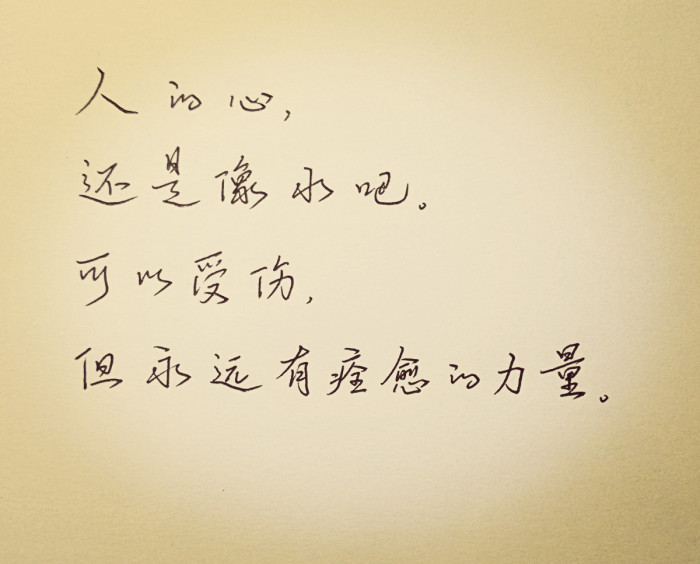 人的心，
还是像水吧。
可以受伤，
但永远有痊愈的力量。